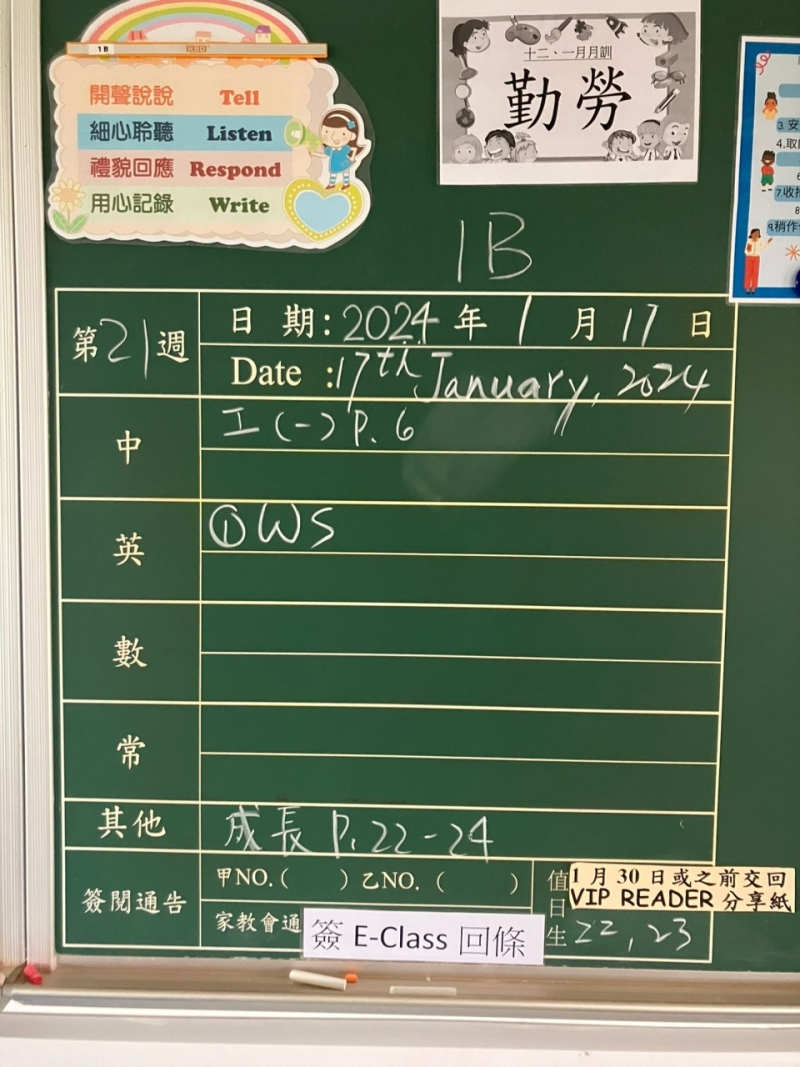 1B
開聲說說 Tell
細心聆聽 Listen
禮貌回應 Respond
用心記錄 Write
十二、一月月訓
勤勞
3. 安
4.取
6
7.收拾
8
9.稍作
1B
第21週
日 期：2024年1月17日
Date :17th January, 2024
中
工(一) P. 6
英
①WS
數
常
其他
成長 P. 22-24
簽閱通告
甲NO.( ) 乙NO. ( )
家教會通
簽 E-Class 回條
值日生
1月30日或之前交回
VIP READER 分享紙
22, 23